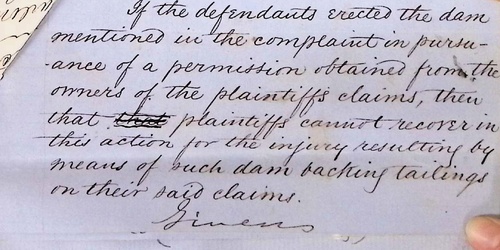 If the defendants erected the dam
mentioned in the complaint in pursu-
-ance of a permission obtained from the
owners of the plaintiffs claims, then
that that plaintiffs cannot recover in
this action for the injury resulting by
means of such dam backing tailings
on their said claims.
Givens